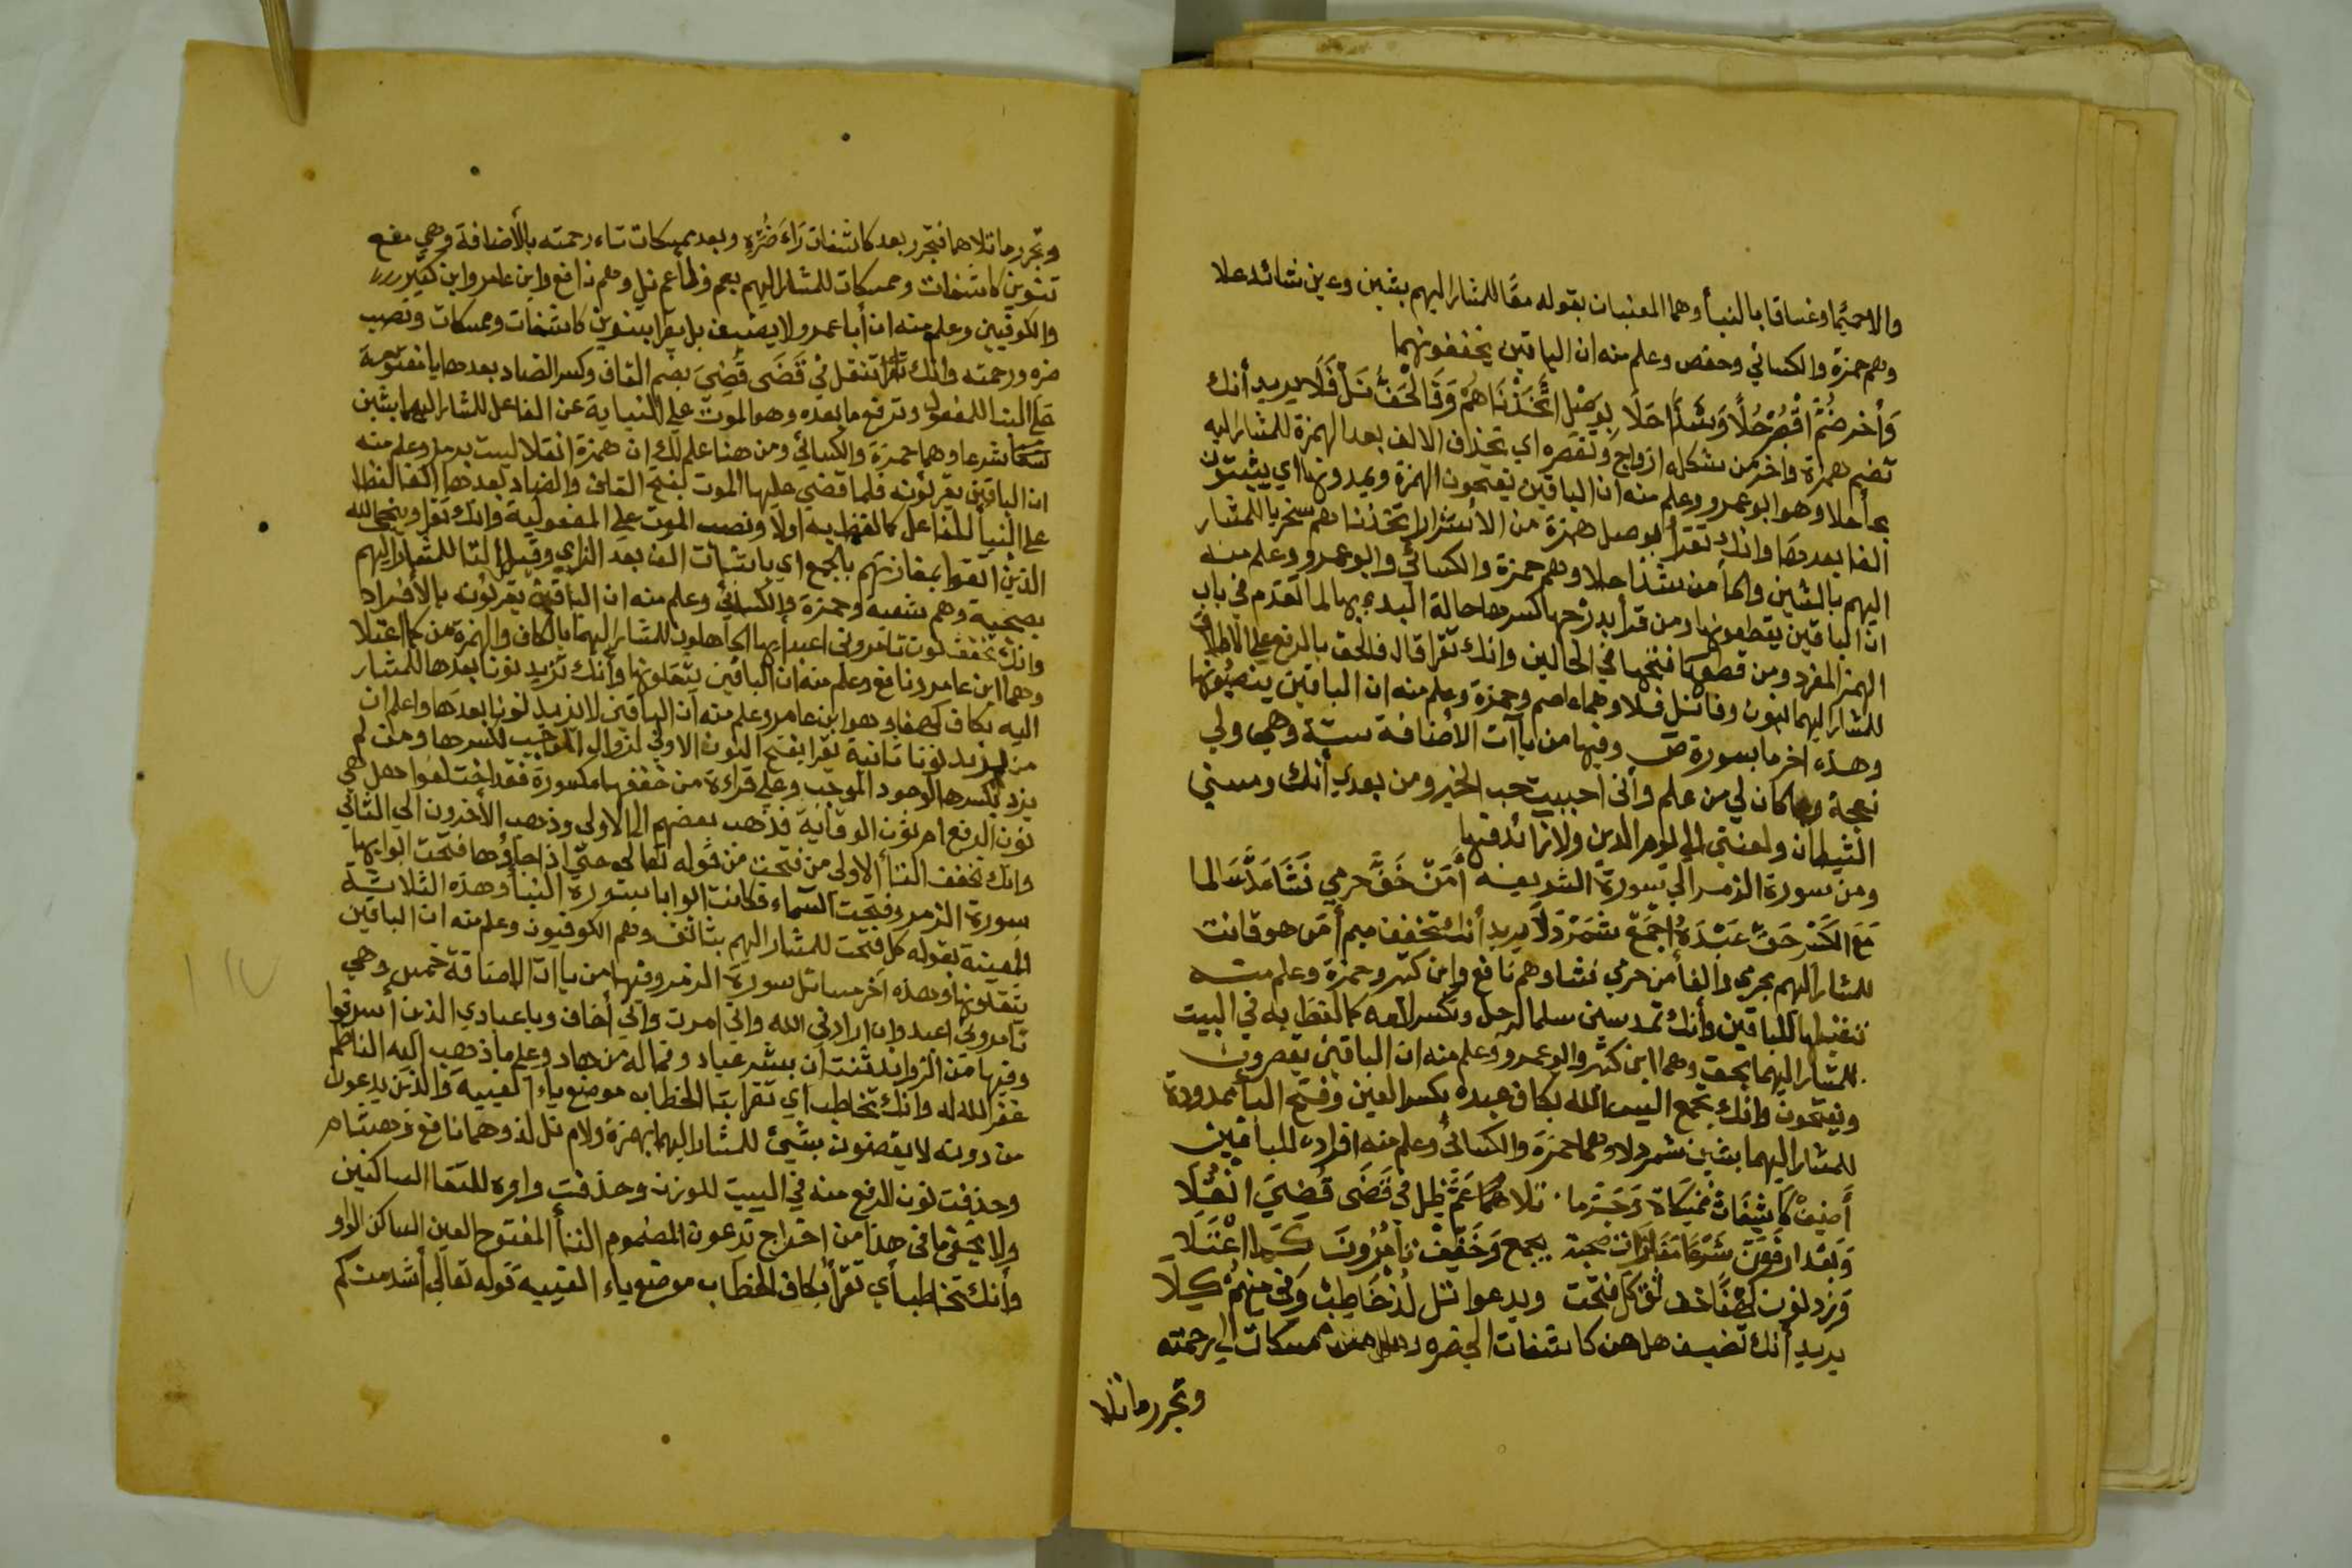 والا حميما وغساقا بالنبأ وهما المعنيان بقوله معًا للمشار اليهم بشين وعين شائد علا
وهم حمزة والكسائي وحفص وعلم منه ان الباقين يخففونهما
وأخر ضُمَّ اقْصُرْ حُلًا وَشَذًا حَلَا بِوَصْلِ اتَّخَذْنَاهُمْ وَقَالْحَقُّ نَلْ فَلَا يريد أنك
تضم همزة واخر من شكله ازواج وتقصره اي تحذف الالف بعد الهمزة للمشار اليه
بحأ حلا وهو ابو عمرو وعلم منه ان الباقين يفتحون الهمزة ويمدونها اي يثبتون
الفا بعدها وانك تقرأ بوصل همزة من الاشرار اتخذناهم سخريا للمشار
اليهم بالشين والحأ من شذا حلا وهم حمزة والكسائي وابو عمرو وعلم منه
ان الباقين يقطعونها ومن قرأ بدرجها كسرها حالة البدء بها لما تقدم في باب
الهمز المفرد ومن قطعها فتحها في الحالين وانك تقرا قال فالحق بالرفع علي الاطلاق
للمشار اليهما بنون وفا نل فلا وهما عاصم وحمزة وعلم منه ان الباقين ينصبونها
وهذه اخر ما بسورة ص وفيها من يآت الأضافة ستة وهي ولي
نعجة وما كان لي من علم وأنى احببت حب الخير ومن بعدي أنك ومسني
الشيطان ولعنتي الي يوم الدين ولا زائد فيها
ومن سورة الزمر الي سورة الشريعه أَمَنْ خَفَّ حرمي فَشَا مَدَّ سَالما
مَعَ الكَسْر حَقّ عَبْدَهُ اجْمَعْ شَمَرْدَلَا يريد أنك تخفف ميم أمن هو قانت
للمشار اليهم بحرمي والفا من حرمي فشا وهم نافع وابن كثير وحمزة وعلم منه
تثقيلها للباقين وأنك تمد سين سلما لرجل وتكسر لامه كما لفظ به في البيت
للمشار اليهما بحق وهما ابن كثير وابو عمرو وعلم منه ان الباقين يقصرون
ويفتحون وانك تجمع اليس الله بكاف عبده بكسر العين وفتح البا ممدودة
للمشار اليهما بشين شمردلا وهما حمزة والكسائي وعلم منه افراده للباقين
أَضِفْ كَاشِفَات مُمْسِكَات وَجَرَّ ما تلاهُمَا عَمَّ ظِل فِي قَضَى قُضِيَ انْقُلَا
وَبَعْد ارفعَن شَرْعًا مَفَازَات صحبة بجمع وَخَفِّفْ تَأمُرُونَ كَمَا اعْتَلَا
وَزِد نون كهْفًا خف ثق كل فتحت ويدعوا نل لُذْ خَاطِبْ وَفي مِنْهُمْ كِلَا
يريد أنك تضيف هل هن كاشفات الي ضره وهل هن ممسكات الي رحمته
وتجرر ما تلا
وتجرر ما تلاهما فتجرر بعد كاشفات رَاءَ ضُرِّهِ وبعد ممسكات تاء رحمته بالأضافة وهي مفع
تنوين كاشفات وممسكات للمشار اليهم بعم وظا عم نل وهم نافع وابن عامر وابن كثير
والكوفيين وعلم منه ان أبا عمرو لا يضيف بل يقرا بتنوين كاشفات وممسكات ونصب
ضره ورحمته وانك تنقل في قَضَى قُضِيَ بضم القاف وكسر الضاد بعدها يا مفتوحة
علي البنا للمفعول وترفع ما بعده وهو الموت علي النيابة عن الفاعل للمشار اليهما بشين
شرعا وهما حمزة والكسائي ومن هنا علم لك ان همزة انقلا ليست برمز وعلم منه
ان الباقين يقرئونه فلما قضي عليها الموت بفتح القاف والضاد بعدها الفا لفظا
علي البنأ للفاعل كما لفظ به اولا ونصب الموت علي المفعولية وانك تقرا وينجي الله
الذين اتقوا بمفازتهم بالجمع اي باثبات الف بعد الزاي وقبل التا للمشار اليهم
بصحبة وهم شعبة وحمزة والكسائي وعلم منه ان الباقين يقرئون بالأفراد
وانك تخفف نون تامروني اعبد أيها الجاهلون للمشار اليهما بالكاف والهمزة من كما اعتلا
وهما ابن عامر ونافع وعلم منه ان الباقين يثقلونها وأنك تزيد نونا بعدها للمشار
اليه بكاف كهفا وهو ابن عامر وعلم منه ان الباقين لا يزيد نونا بعدها واعلم ان
من يزيد نونا ثانية يقرا بفتح النون الاولي لزوال الموجب لكسرها ومن لم
يزد يكسرها لوجود الموجب وعلي قراءة من خففها مكسورة فقد اختلفوا هل هي
نون الرفع ام نون الوقاية فذهب بعضهم الي الاولي وذهب الأخرون الي الثاني
وانك تخفف التأ الاولي من فتحت من قوله تعالي حتي اذا جاؤها فتحت ابوابها
سورة الزمر وفتحت السماء فكانت ابوابا بسورة النبأ وهذه الثلاثة
المعينة بقوله كل فتحت للمشار اليهم بثا ثق وهم الكوفيون وعلم منه ان الباقين
يثقلونها وهذه اخر مسائل سورة الزمر وفيها من ياات الاضافة خمس وهي
تامروني اعبد وان ارادني الله واني امرت واني أخاف ويا عبادي الذين أسرفوا
وفيها من الزوائد ثنتان بشر عباد وفما له من هاد وعلم ما ذهب اليه الناظم
غفر الله له وانك تخاطب اي تقرا بتا الخطاب موضع ياء الغيبة والذين يدعون
من دونه لا يقضون بشئ للمشار اليهما بهمزة ولام نل لذ وهما نافع وهشام
وحذفت نون الرفع منه في البيت للوزن وحذفت واوه للتقا الساكنين
ولا يخفي ما في هذا من اخراج تدعون المضموم التأ المفتوح العين الساكن الواو
وأنك تخاطب أي تقرأ بكاف الخطاب موضع ياء الغيبة قوله تعالي أشد منكم